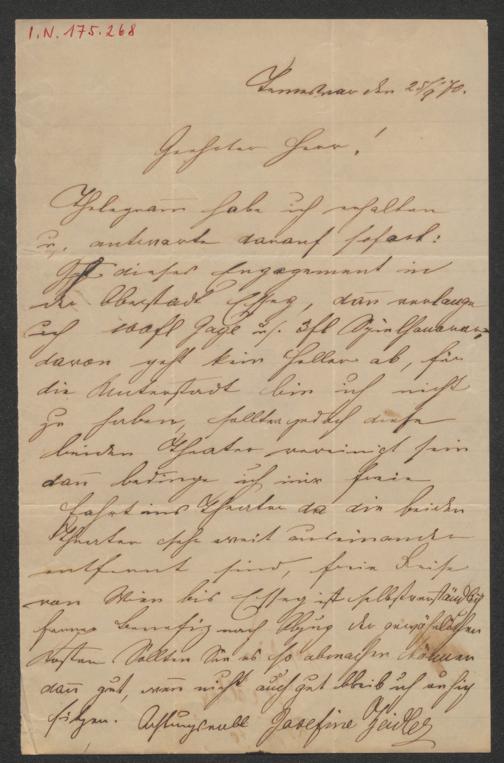 I.N. 175.268
Temesvar den 25/9 70.
Geehrter Herr!
Thelegramm habe ich erhalten
u. antworte darauf sofort:
Ist dieses Engagement in
der Oberstadt Esseg, dann verlange
ich 100fl Gage u. 3fl Spielhonorar,
davon geht kein Heller ab, für
die Unterstadt bin ich nicht
zu haben, sollten jedoch diese
beiden Theater vereinigt sein
dann bedinge ich mir freie
Fahrt ins Theater da die beiden
Theater sehr weit auseinander
entfernt sind, freie Reise
von Wien bis Esseg ist selbstverständlich
ferner Benefiz nach Abzug der gewöhnlichen
Kosten Sollten Sie es so abmachen können
dann gut, wenn nicht auch gut bleib ich
sitzen. Achtungsvoll Josefine Zeidler